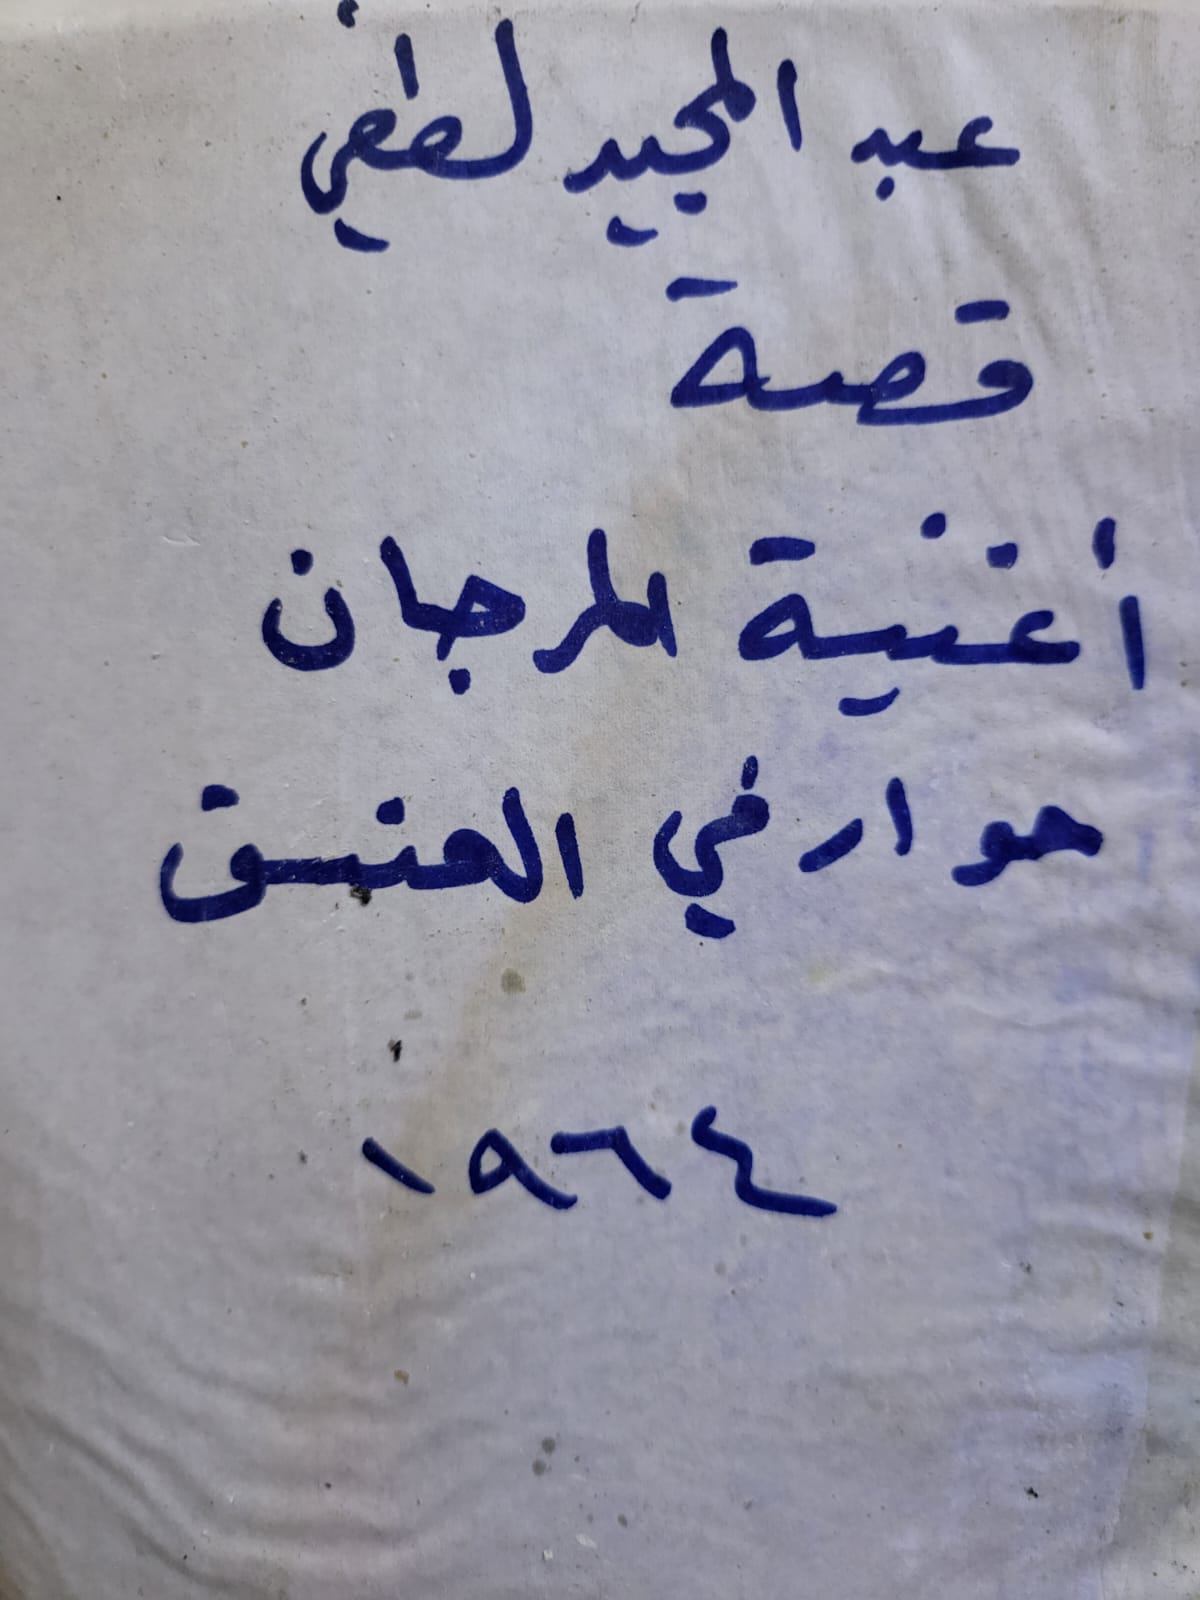 عبد المجيد لطفي
قصة
أغنية المرجان
حوار في الغسق
١٩٦٤